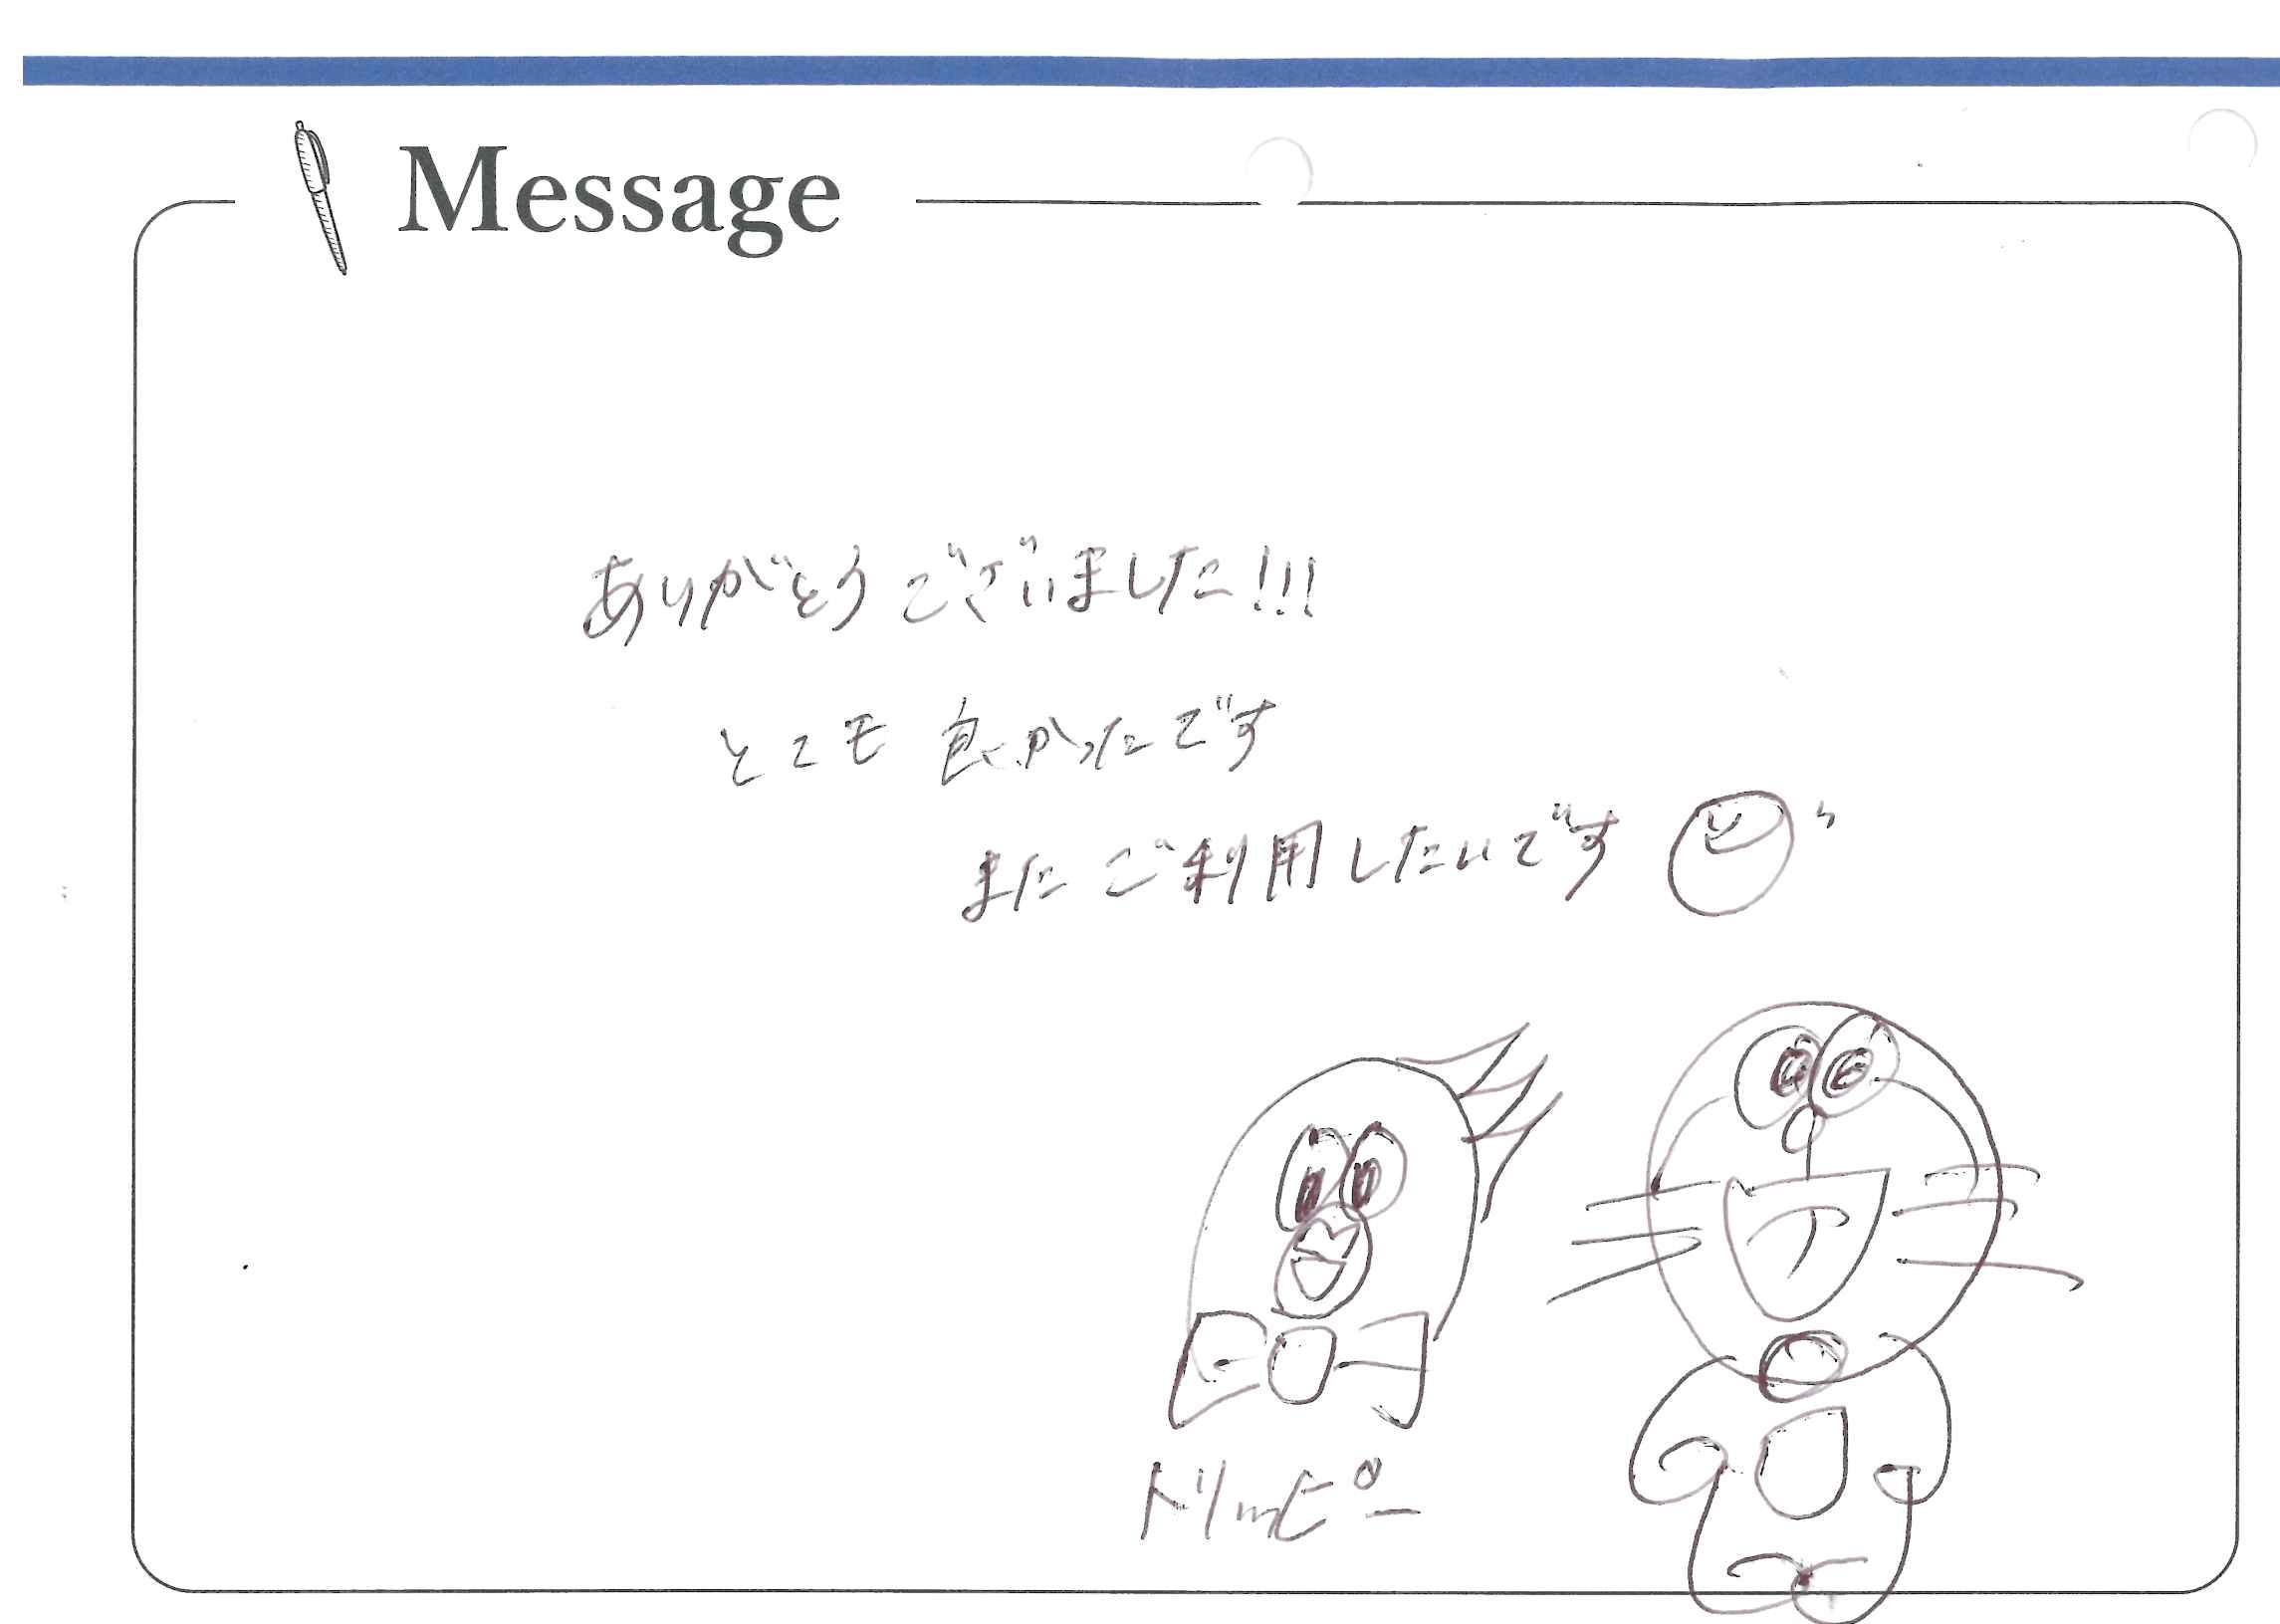 Message
ありがとうございました!!!
とても良かったです
またご利用したいです
ドリッピー